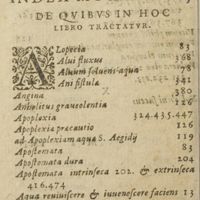 DE QVIBVS IN HOC
LIBRO TRACTATVR.
ALopecia 83
Alui fluxus 368
Aluum soluens aqua 78
Ani fistula 341
Angina 380
Anhelitus graueolentia 126
Apoplexia 324.435.447
Apoplexiæ præcautio 126
ad Apoplexiam aqua S. Aegidij 119
Apostemata 83
Apostemata dura 204
Apostemata intrinseca 202. & extrinseca
426.474
Aqua reuiuiscere & iuuenescere faciens 13